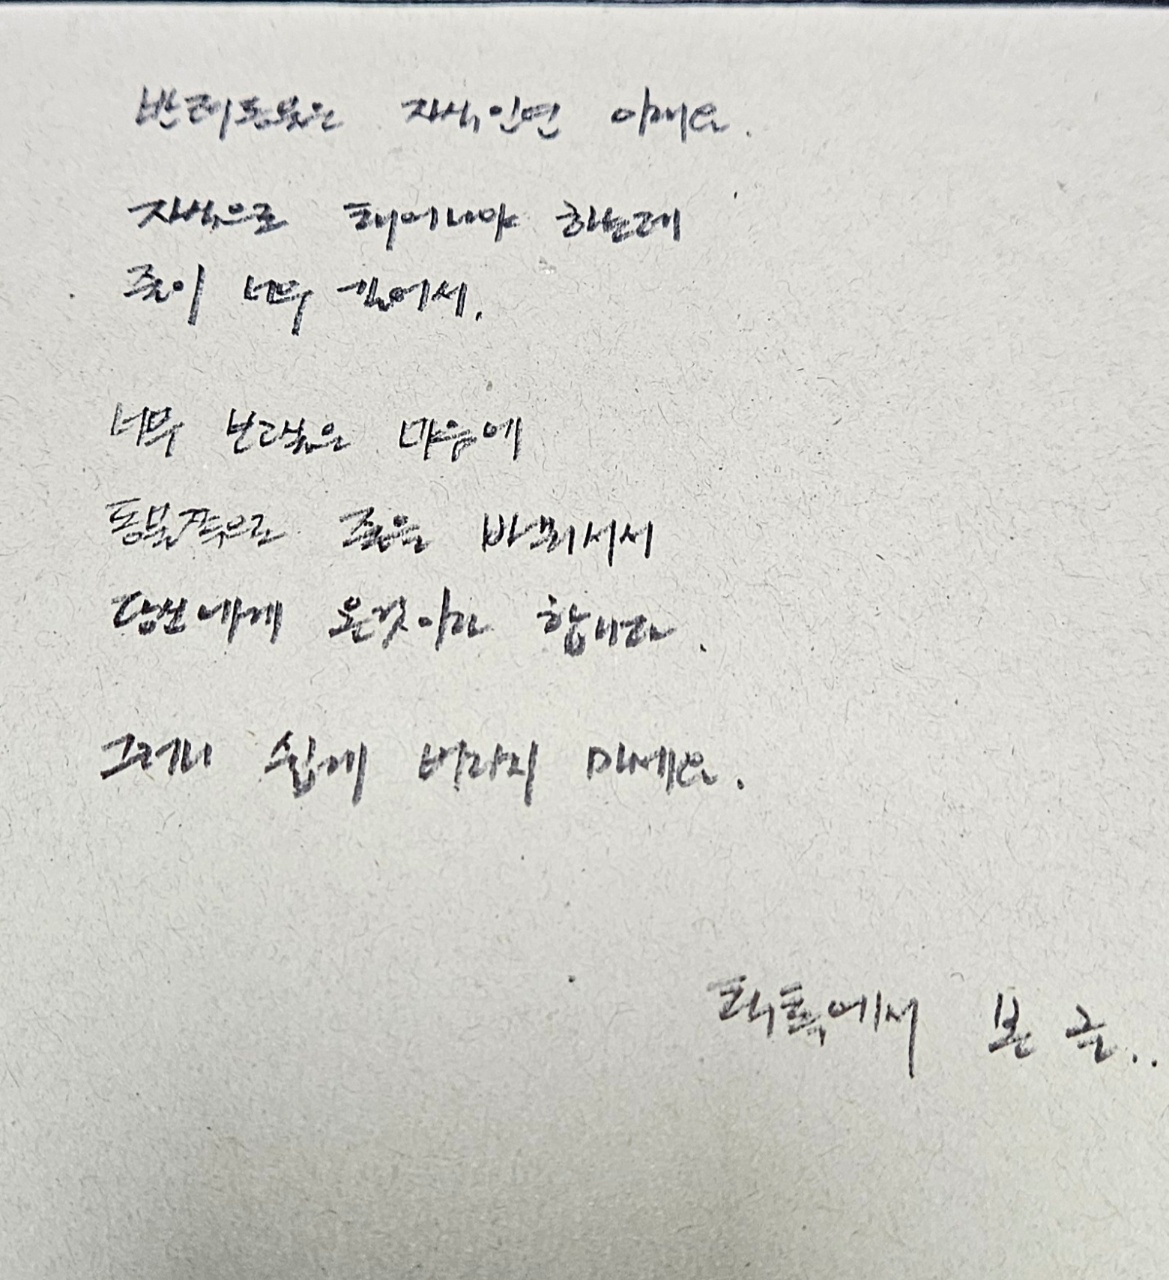 반려동물은 자식인연 이래요.
자식으로 태어나야 하는데
줄이 너무 길어서.
너무 보고싶은 마음에
동물쪽으로 줄을 바꿔서서
당신에게 온것이라 합니다.
그러니 쉽게 버리지 마세요.
틱톡에서 본 글..